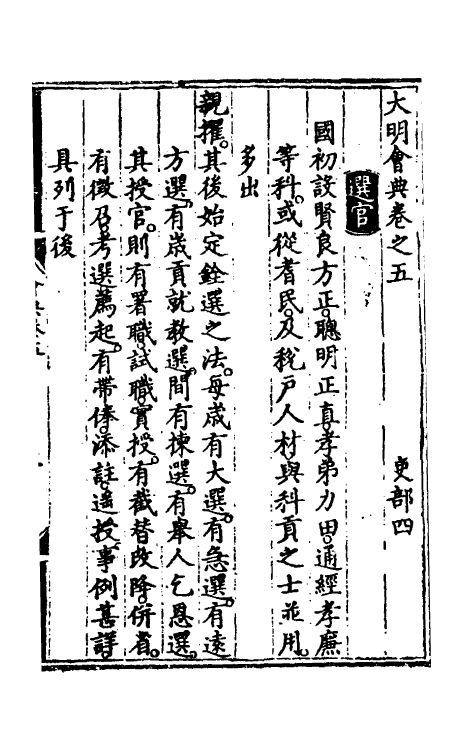 大明會典卷之五
吏部四
選官
國初設賢良方正。聰明正直。孝弟力田。通經孝廉
等科。或從耆民。及稅戶人材。與科貢之士並用。
多出
親擢。其後始定銓選之法。每歲有大選。有急選。有遠
方選。有歲貢就教選。間有揀選。有舉人乞恩選。
其授官。則有署職。試職。實授。有截替改降。併省。
有徵召。考選。薦起。有帶俸。添註。遙授。事例甚詳。
具列于後